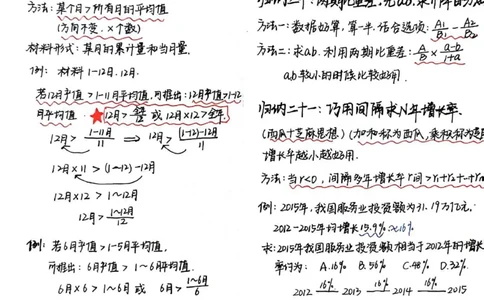 方法：某个月>所有月的平均值
(方向不变，×个数)
材料形式：某月的累计量和当月量.
例：材料1-12月.12月.
若12月产值>1-11月平均值,可推出：12月产值>1-12
月平均值. ★12月> 或12月×12>全年.
12月>1-11月/11 ⇒ 12月>(1-12)-12月/11
12月×11 > (1~12)-12月
12月×12 > 1~12月
12月>1~12月/12
例：若6月产值>1-5月平均值.
可推出：6月产值 > 1~6月平均值.
6月×6 > 1~6月 或 6月>1~6月/6
方法一：数据好算,算一半.结合选项：A1/B1 - A2/B2
方法二：求ab.利用两期比重差：A/B × a-b/1+a
ab较小的时候比较好用.
归纳二十一：巧用间隔求N年增长率.
增长率越小越好用.
方法：当r<0，间隔多年增长率r间>r1+r2+…+rn
例：2015年,我国服务业投资额为31.19万亿元.
2012-2015年均增长15.9%≈16%
求:2015年我国服务业投资额相当于2012年的增长
率约为： A.16% B.56% C.48% D.32%.
2012 16% 2013 16% 2014 16% 2015